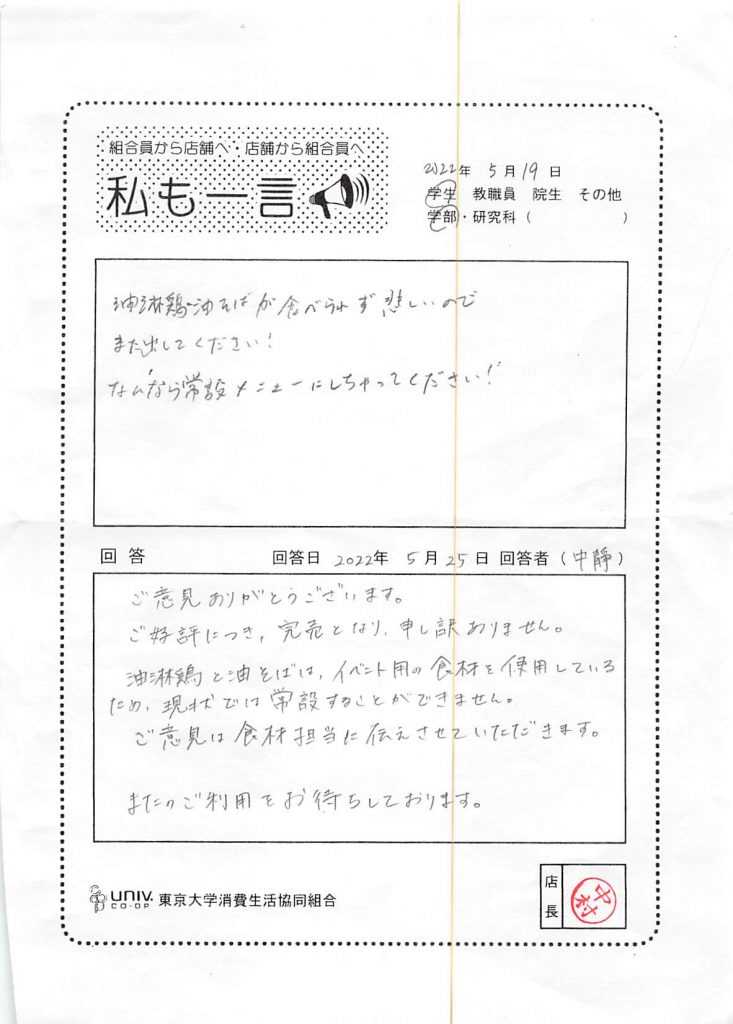 組合員から店舗へ・店舗から組合員へ
私も一言
2022年 5月19日
学生 教職員 院生 その他
学部・研究科( )
油淋鶏油そばが食べられず悲しいので
また出してください!
なんなら常設メニューにしちゃってください!
回答 回答日 2022年 5月25日 回答者(中静)
ご意見ありがとうございます。
ご好評につき、完売となり、申し訳ありません。
油淋鶏と油そばは、イベント用の食材を使用している
ため、現状では常設することができません。
ご意見は食材担当に伝えさせていただきます。
またのご利用をお待ちしております。
UNIV. CO-OP 東京大学消費生活協同組合
店長 中村